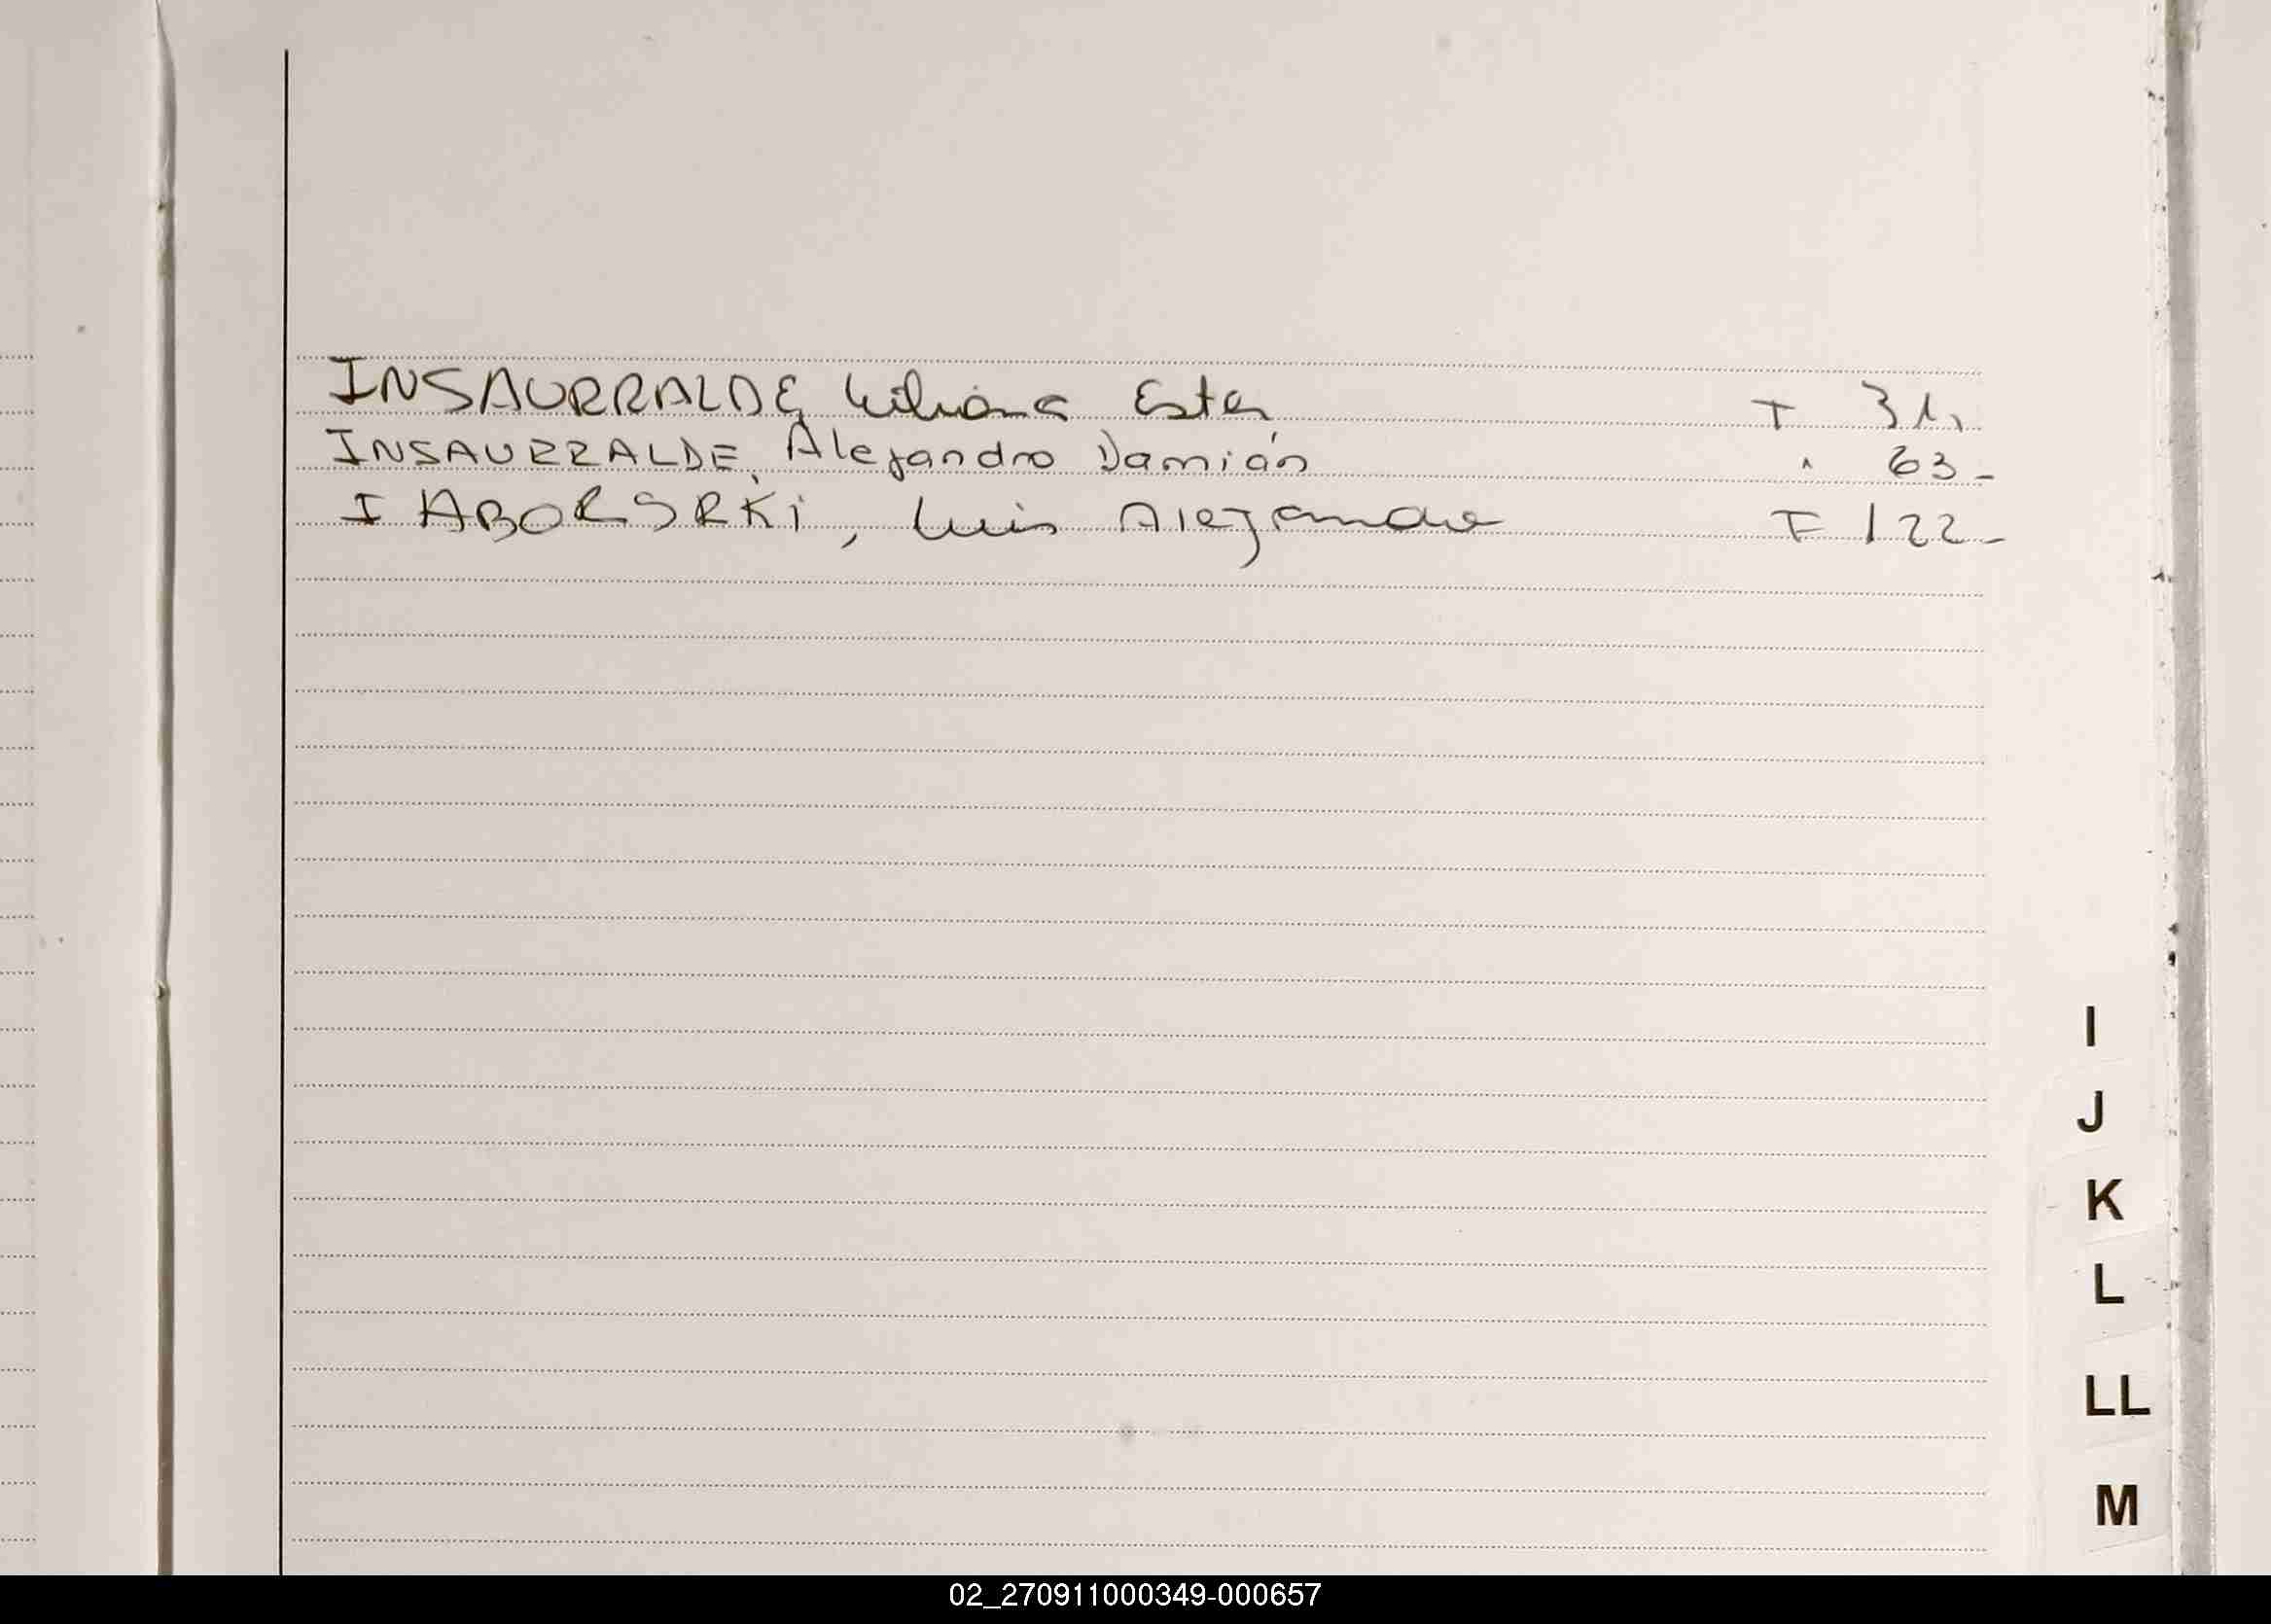 INSAURRALDE Liliana Ester T 31,
INSAURRALDE, Alejandro Damián " 63-
I ABORSRKI, Luis Alejandro F 122-
I
J
K
L
LL
M
02_270911000349-000657